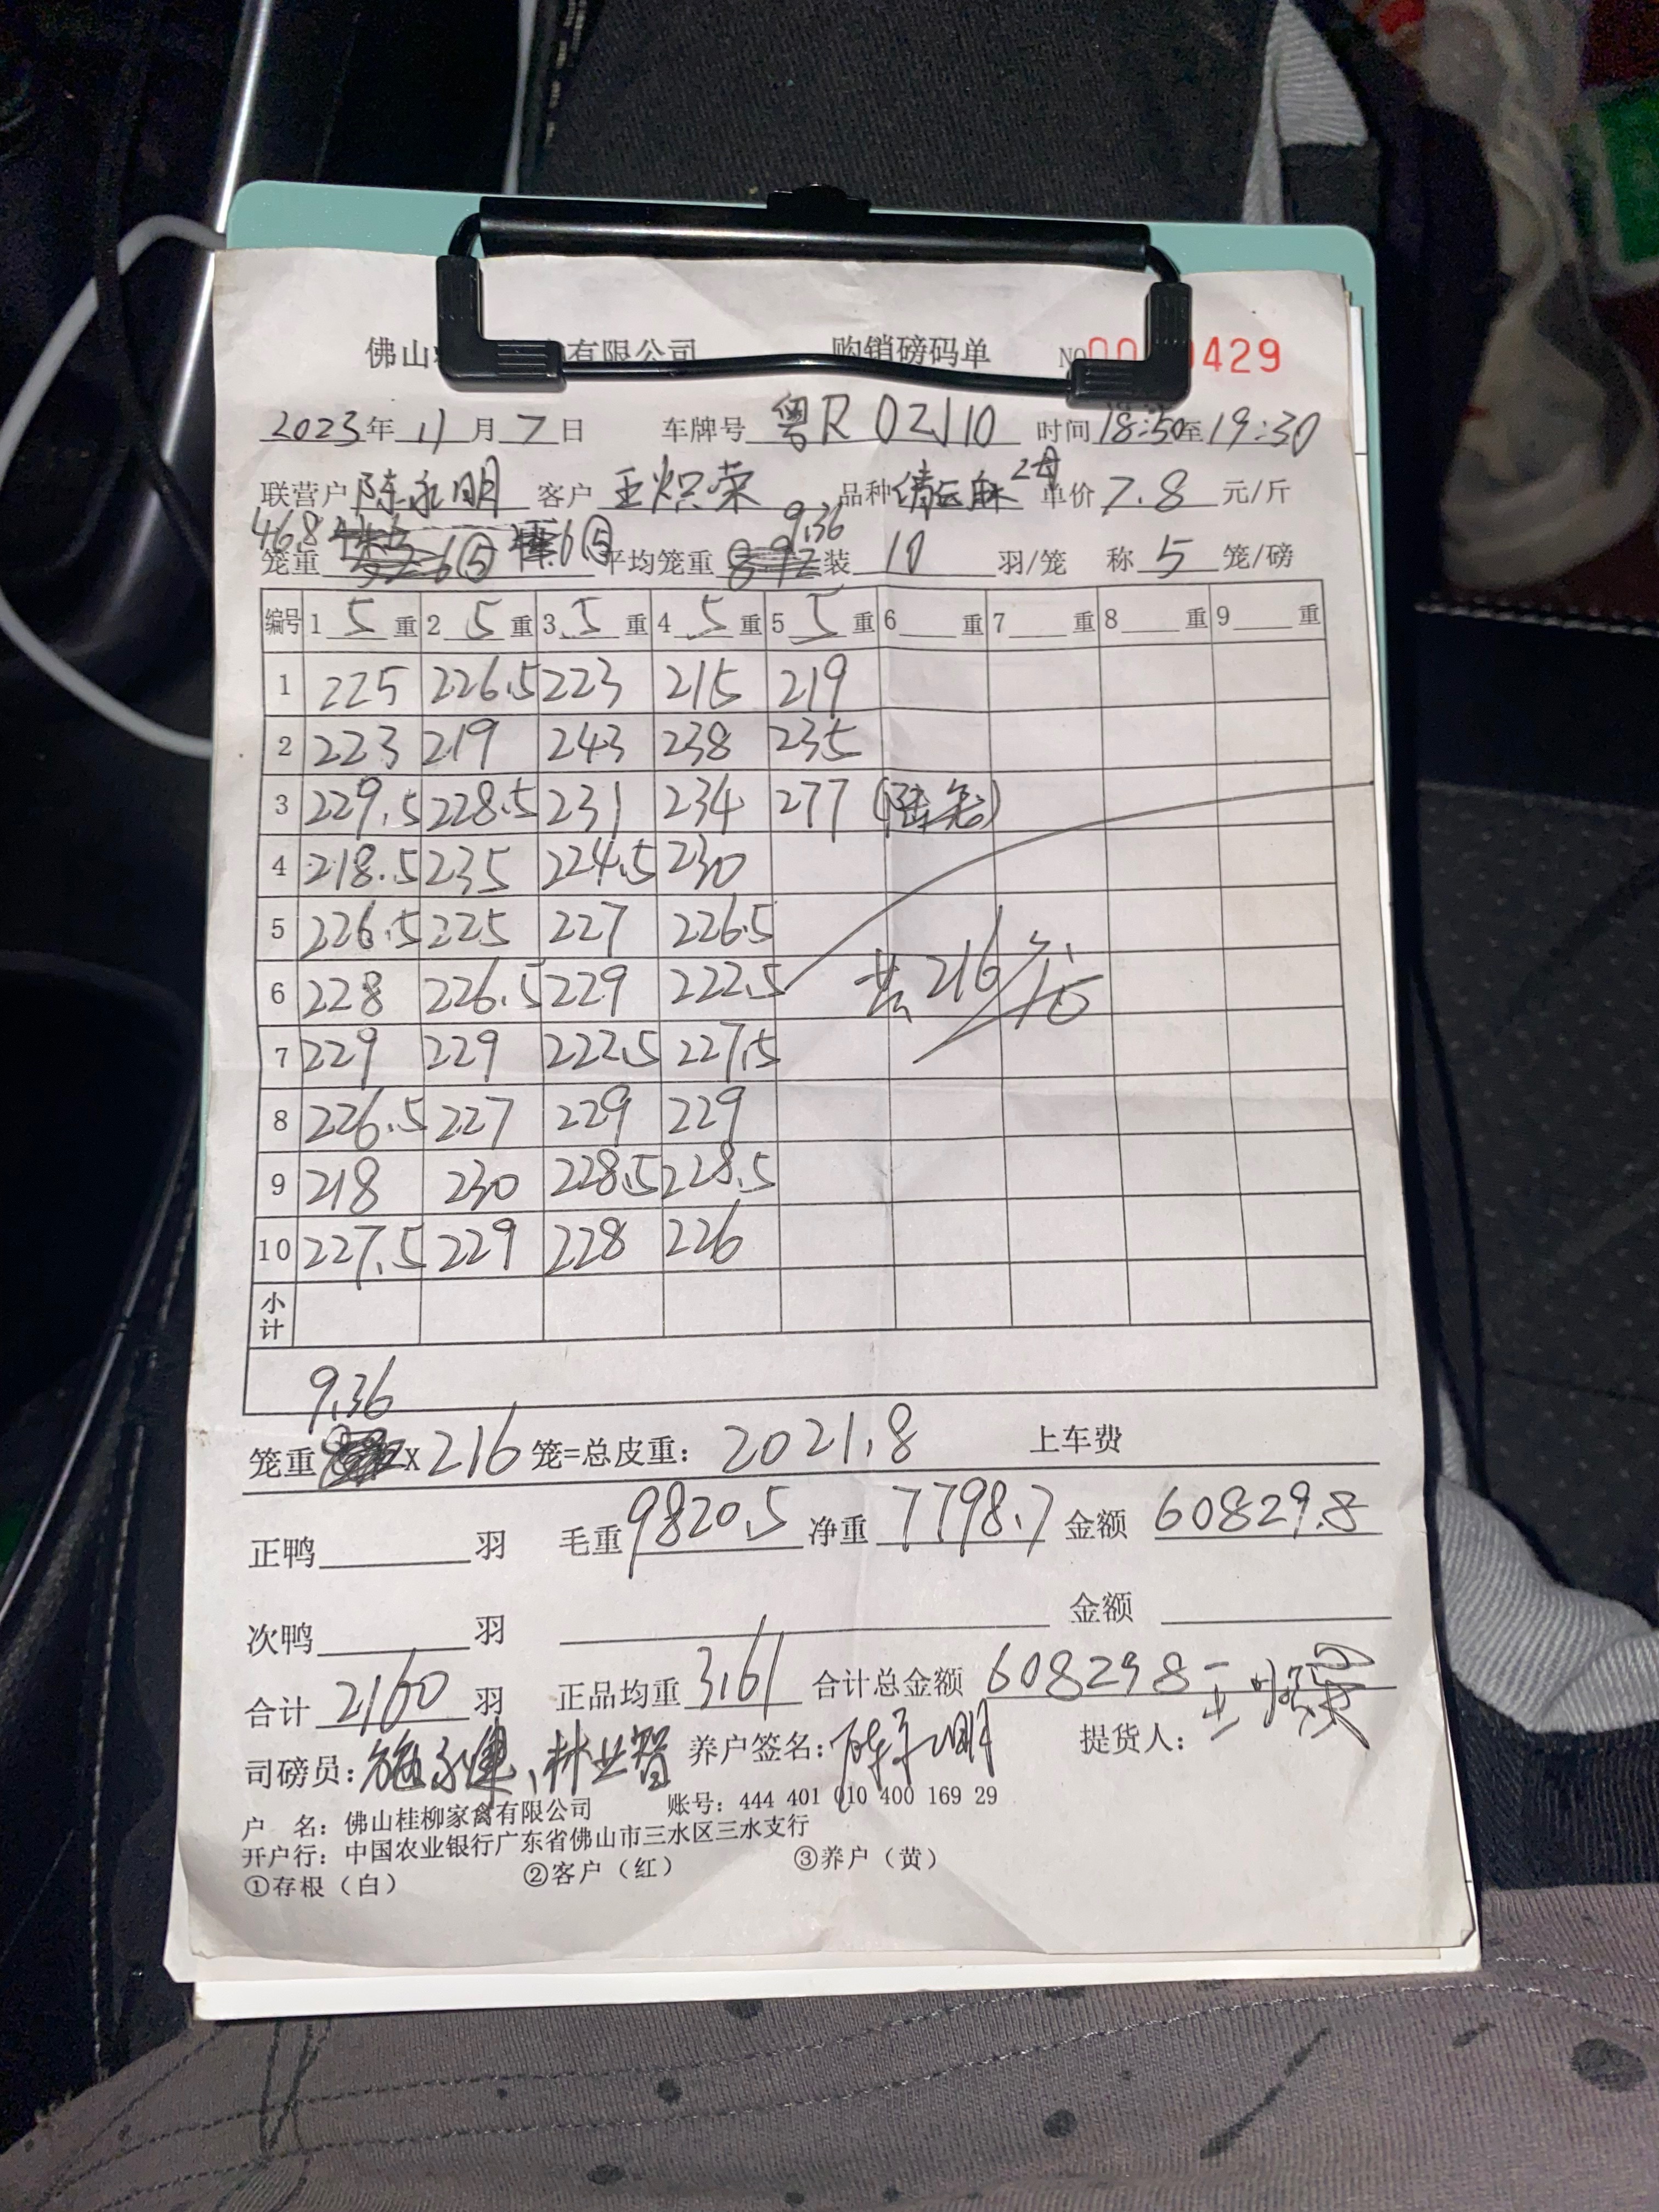 佛山 有限公司 购销磅码单 NO 0429
2023年 11月 7日 车牌号 粤R 02J10 时间 18:50至19:30
联营户 陈永明 客户 王炽荣 品种 2母 单价 7.8 元/斤
46.8 6⑤ 9.36
笼重 6⑤ 平均笼重 装 10 羽/笼 称 5 笼/磅
编号 1 5 重 2 5 重 3 5 重 4 5 重 5 5 重 6 重 7 重 8 重 9 重
1 225 226.5 223 215 219
2 223 219 243 238 235
3 229.5 228.5 231 234 277
4 218.5 235 224.5 230
5 226.5 225 227 226.5
6 228 226.5 229 222.5 共216笼
7 229 229 222.5 227.5
8 226.5 227 229 229
9 218 230 228.5 228.5
10 227.5 229 228 226
小计
9.36
笼重 X 216 笼=总皮重: 2021.8 上车费
正鸭 羽 毛重 9820.5 净重 7798.7 金额 60829.8
次鸭 羽 金额
合计 2160 羽 正品均重 3.61 合计总金额 60829.8
司磅员: 施永健、林业智 养户签名: 陈永明 提货人: 王炽荣
户 名: 佛山桂柳家禽有限公司 账号: 444 401 010 400 169 29
开户行: 中国农业银行广东省佛山市三水区三水支行
①存根（白） ②客户（红） ③养户（黄）